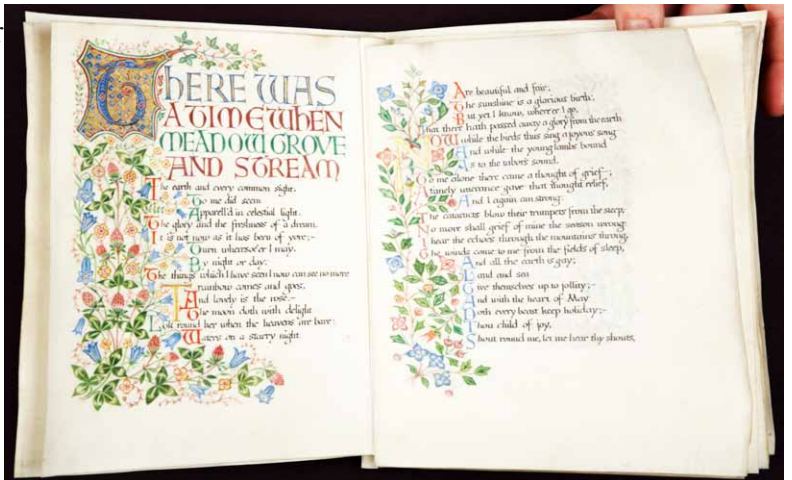 THERE WAS
A TIME WHEN
MEADOW GROVE
AND STREAM
The earth and every common sight,
To me did seem
Apparell'd in celestial light,
The glory and the freshness of a dream.
It is not now as it has been of yore;–
Turn wheresoe'er I may,
By night or day,
The things which I have seen I now can see no more
The rainbow comes and goes,
And lovely is the rose.–
The moon doth with delight
Look round her when the heavens are bare:
Waters on a starry night
Are beautiful and fair;
The sunshine is a glorious birth;
But yet I know, where'er I go,
That there hath passed away a glory from the earth
NOW while the birds thus sing a joyous song
And while the young lambs bound
As to the tabor's sound,
To me alone there came a thought of grief–;
A timely utterance gave that thought relief,
And I again am strong:
The cataracts blow their trumpets from the steep,
No more shall grief of mine the season wrong:
I hear the echoes through the mountains throng,
The winds come to me from the fields of sleep,
And all the earth is gay;
Land and sea
Give themselves up to jollity;–
And with the heart of May
Doth every beast keep holiday;–
Thou child of joy,
Shout round me, let me hear thy shouts,